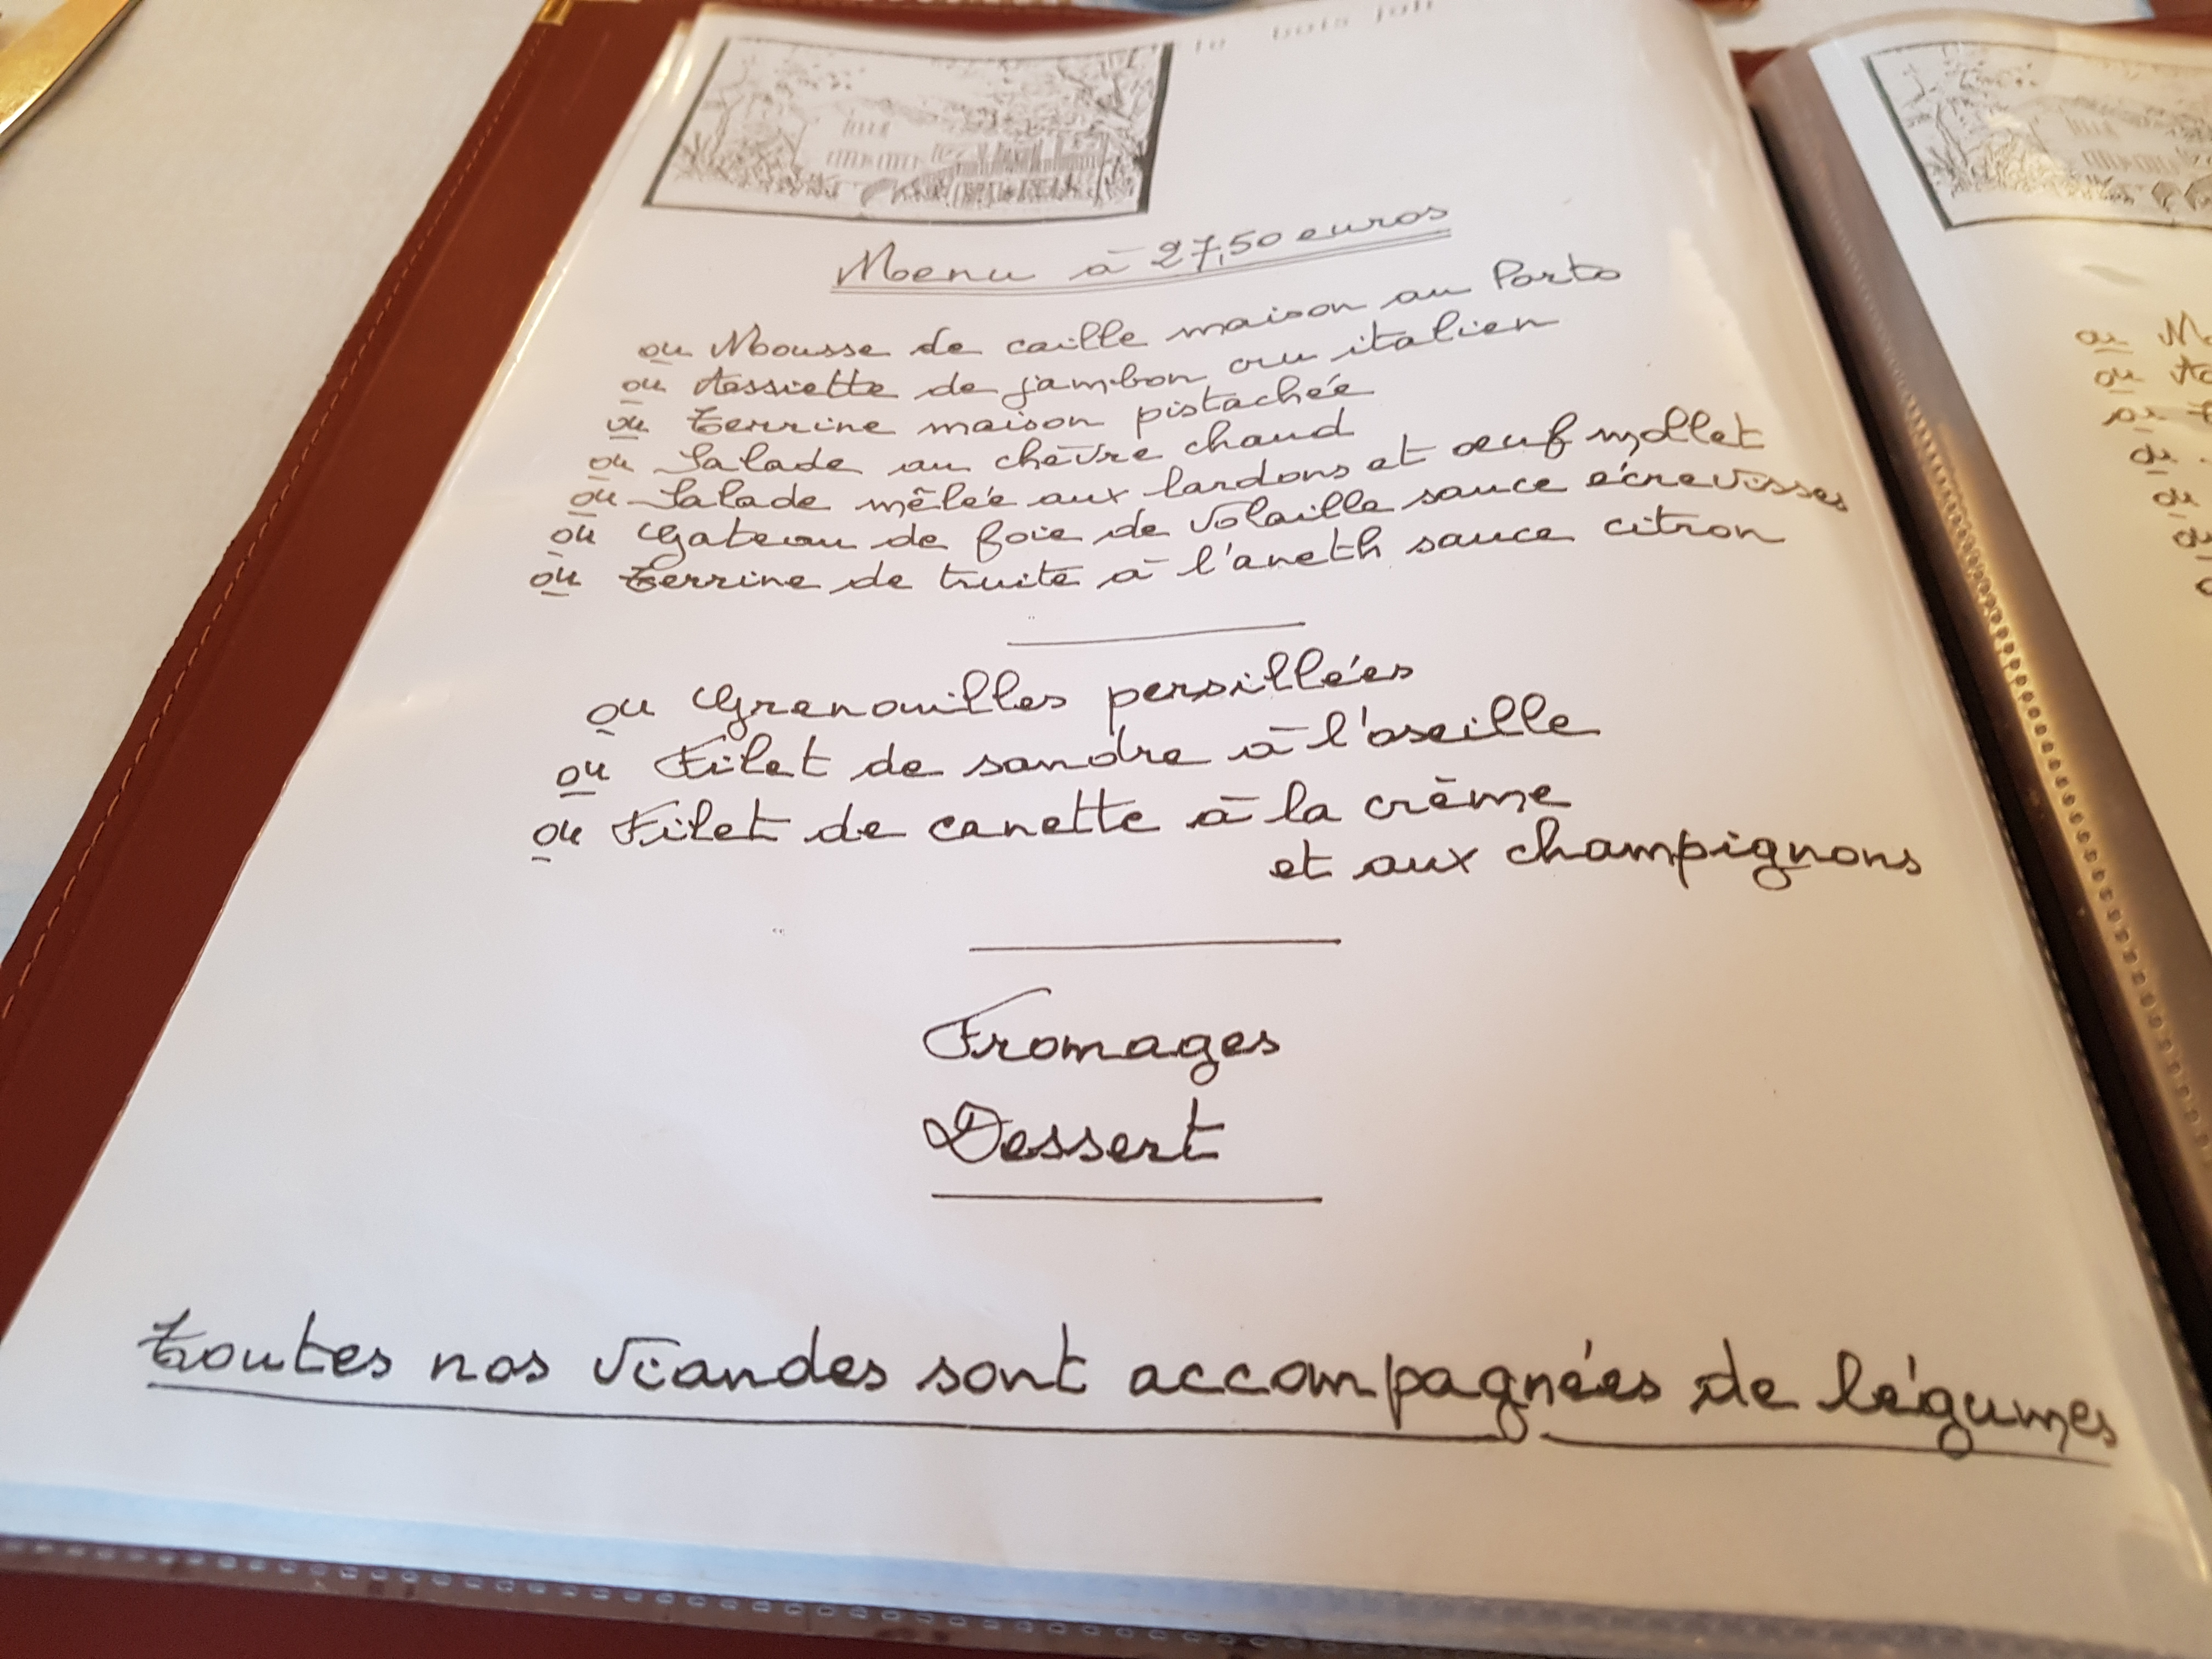 le bois joli
Menu à 27,50 euros
ou Mousse de caille maison au Porto
ou Assiette de jambon cru italien
ou Terrine maison pistachée
ou Salade au chèvre chaud
ou Salade mêlée aux lardons et œuf mollet
ou Gateau de foie de volaille sauce écrevisses
ou Terrine de truite à l'aneth sauce citron
ou Grenouilles persillées
ou Filet de sandre à l'oseille
ou Filet de canette à la crème
et aux champignons
Fromages
Dessert
Toutes nos viandes sont accompagnées de légumes
ou M
ou As
ou T
ou
ou
ou